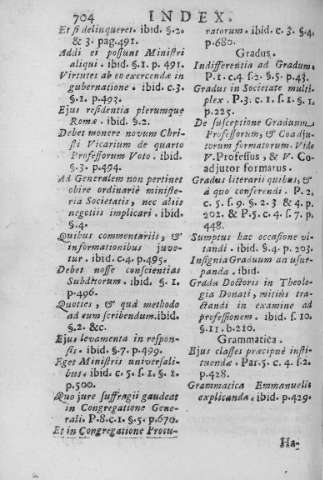 704 INDEX.
Et si delinqueret. ibid. §.2.
& 3. pag.491.
Addi ei possunt Ministri
aliqui. ibid. §.1. p. 491.
Virtutes ab eo exercendæ in
gubernatione. ibid. c.3.
§.1. p.493.
Ejus residentia plerumque
Romæ. ibid. §.2.
Debet monere novum Chri-
sti Vicarium de quarto
Professorum Voto. ibid.
§.3. p.494.
Ad Generalem non pertinet
obire ordinariè ministe-
ria Societatis, nec aliis
negotiis implicari. ibid.
§.4.
Quibus commentariis, &
informationibus juve-
tur. ibid. c.4. p.495.
Debet nosse conscientias
Subditorum. ibid. §.1.
p.496.
Quoties, & quâ methodo
ad eum scribendum. ibid.
§.2. &c.
Ejus levamenta in respon-
sis. ibid. §.7. p.499.
Eget Ministris universali-
bus. ibid. c.5. §.1.
p.500.
Quo jure suffragii gaudeat
in Congregatione Gene-
rali. P.8.c.1. §.5. p.670.
Et in Congregatione Procu-
ratorum. ibid. c.3. §.4.
p.680.
Gradus.
Indifferentia ad Gradum.
P.1. c.4. §.2. §.5. p.43.
Gradus in Societate multi-
plex. P.3. c.1. §.1. §.1.
p.225.
De susceptione Graduum,
Professorum, & Coadju-
torum formatorum. Vide
V. Professus, & V. Co-
adjutor formatus.
Gradus literarii quibus, &
à quo conferendi. P.2.
c.5. §.9. §.2. 3 & 4. p.
202. & P.5. c.4. §.7. p.
448.
Sumptus hac occasione vi-
tandi. ibid. §.4. p. 203.
Insignia Graduum an usur-
panda. ibid.
Gradu Doctoris in Theolo-
gia Donati, mitiùs tra-
ctandi in examine ad
professionem. ibid. §.10.
§.11. p.210.
Grammatica.
Ejus classes præcipuè insti-
tuendæ. Par.5. c.4. §.2.
p.428.
Grammatica Emmanuelis
explicanda. ibid. p.429.
Ha-